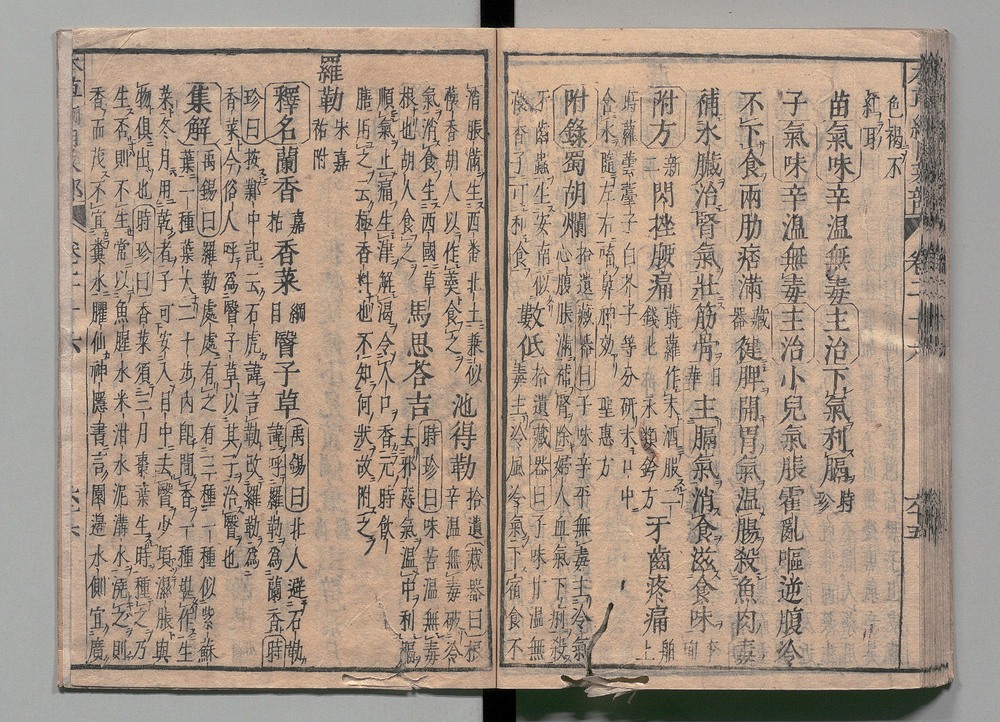 色褐不
紅耳
苗氣味辛溫無毒主治下氣利膈時珍
子氣味辛溫無毒主治小兒氣脹霍亂嘔逆腹冷
不下食兩肋痞滿藏器健脾開胃氣溫腸殺魚肉毒
補水臟治腎氣壯筋骨日華主膈氣消食滋食味
附方新二閃挫腰痛蒔蘿作末酒服二錢匕牙齒疼痛舶上
蒔蘿蕓薹子白芥子等分研末口中
含水隨左右㗜鼻神效聖惠方
附錄蜀胡爛拾遺藏器曰子味辛平無毒主冷氣
心腹脹滿補腎除婦人血氣下痢殺
牙齒蟲生安南似
䕲香子可和食數低拾遺藏器曰子味甘溫無
毒主冷風冷氣下宿食不
消脹滿生西番北土兼似
䕲香胡人以作羹食之池得勒拾遺藏器曰根
辛溫無毒破冷
氣消食生西國草
根也胡人食之馬思荅吉時珍曰味苦溫無毒
去邪惡氣溫中利膈
順氣止痛生津解渴令人口香元時飲
膳用之云極香料也不知何狀故附之
羅勒宋嘉祐附
釋名蘭香嘉祐香菜綱目瞖子草禹錫曰北人避石勒
諱呼羅勒為蘭香時
珍曰按鄴中記云石虎諱言勒改羅勒為
香菜今俗人呼為瞖子草以其子治瞖也
集解禹錫曰羅勒處處有之有三種一種似紫蘇
葉一種葉大二十步內即聞香一種堪作生
菜冬月用乾者子可安入目中去瞖少頃濕脹與
物俱出也時珍曰香菜須三月棗葉生時種之乃
生否則不生常以魚腥水米泔水泥溝水澆之則
香而茂不宜糞水臞仙神隱書言園邊水側宜廣